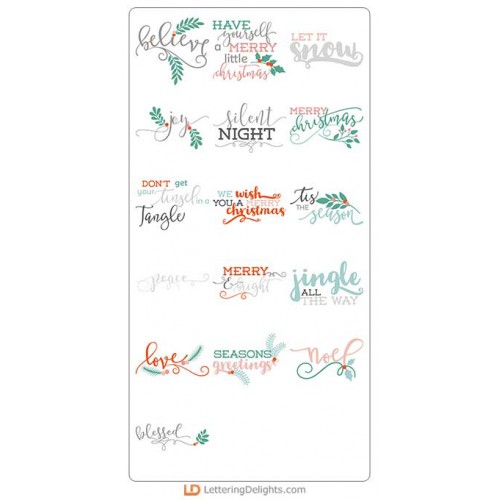 believe
HAVE
yourself
a MERRY
little
christmas
LET IT
snow
joy
silent
NIGHT
MERRY
christmas
DON'T get
your tinsel in a
Tangle
WE wish
YOU A MERRY
christmas
'tis
THE season
peace
MERRY
& bright
jingle
ALL
THE WAY
love
SEASONS
greetings
Noel
blessed
LD LetteringDelights.com